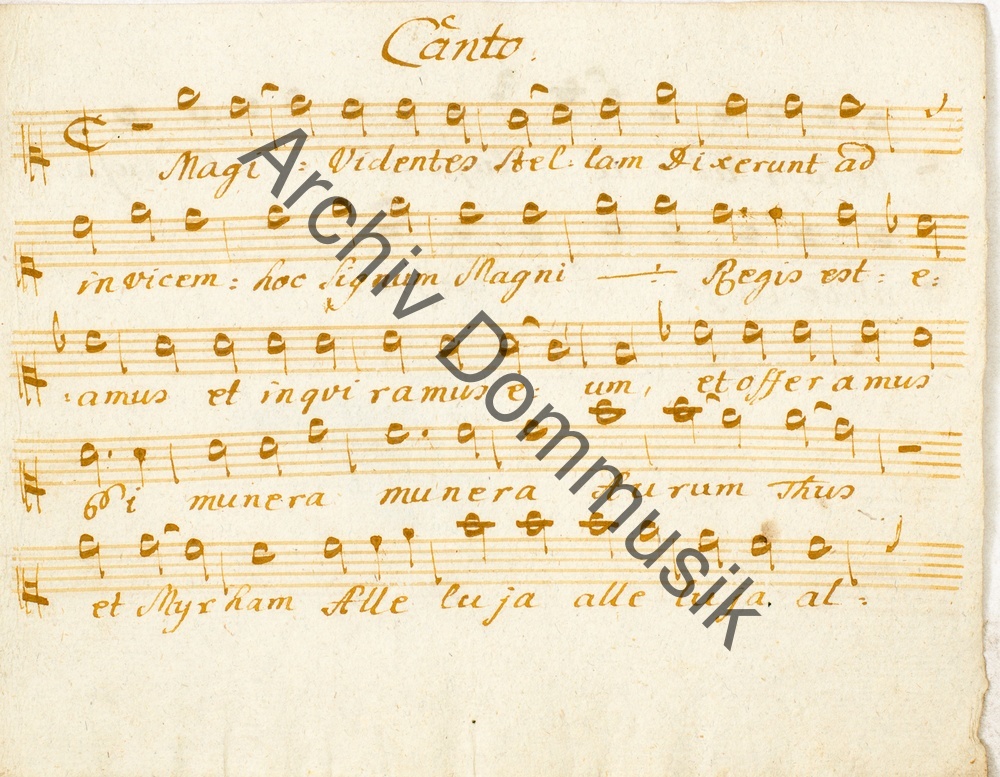 Canto.
Magi : Videntes stel: lam Dixerunt ad
invicem: hoc signum Magni Regis est: e:
:amus et inqviramus e: um, et offeramus
Ei munera munera Aurum Thus
et Myrham Alle luja alle luja. al:
Archiv Dommusik